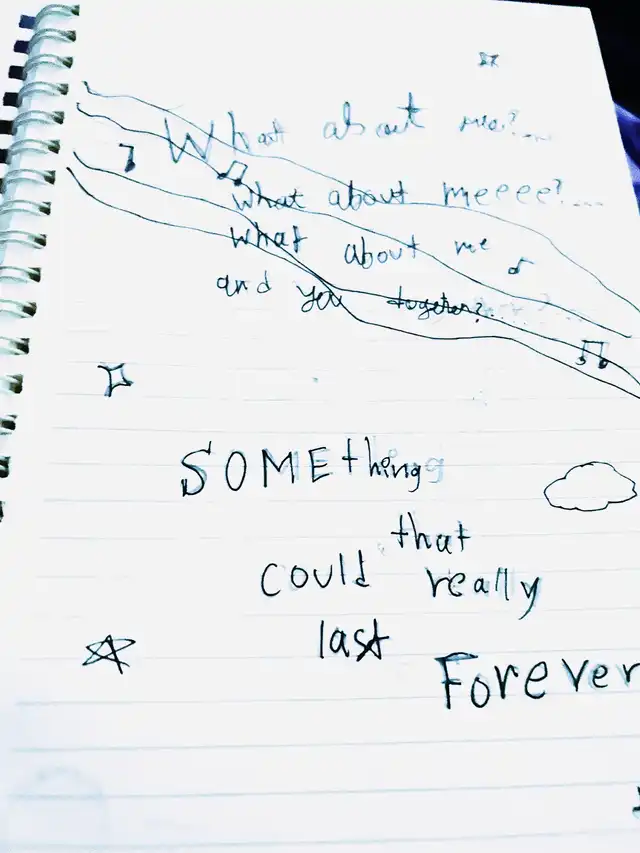 What about me?...
What about meeee?....
what about me
and you together?..
SOMEthing
that
could really
last
Forever